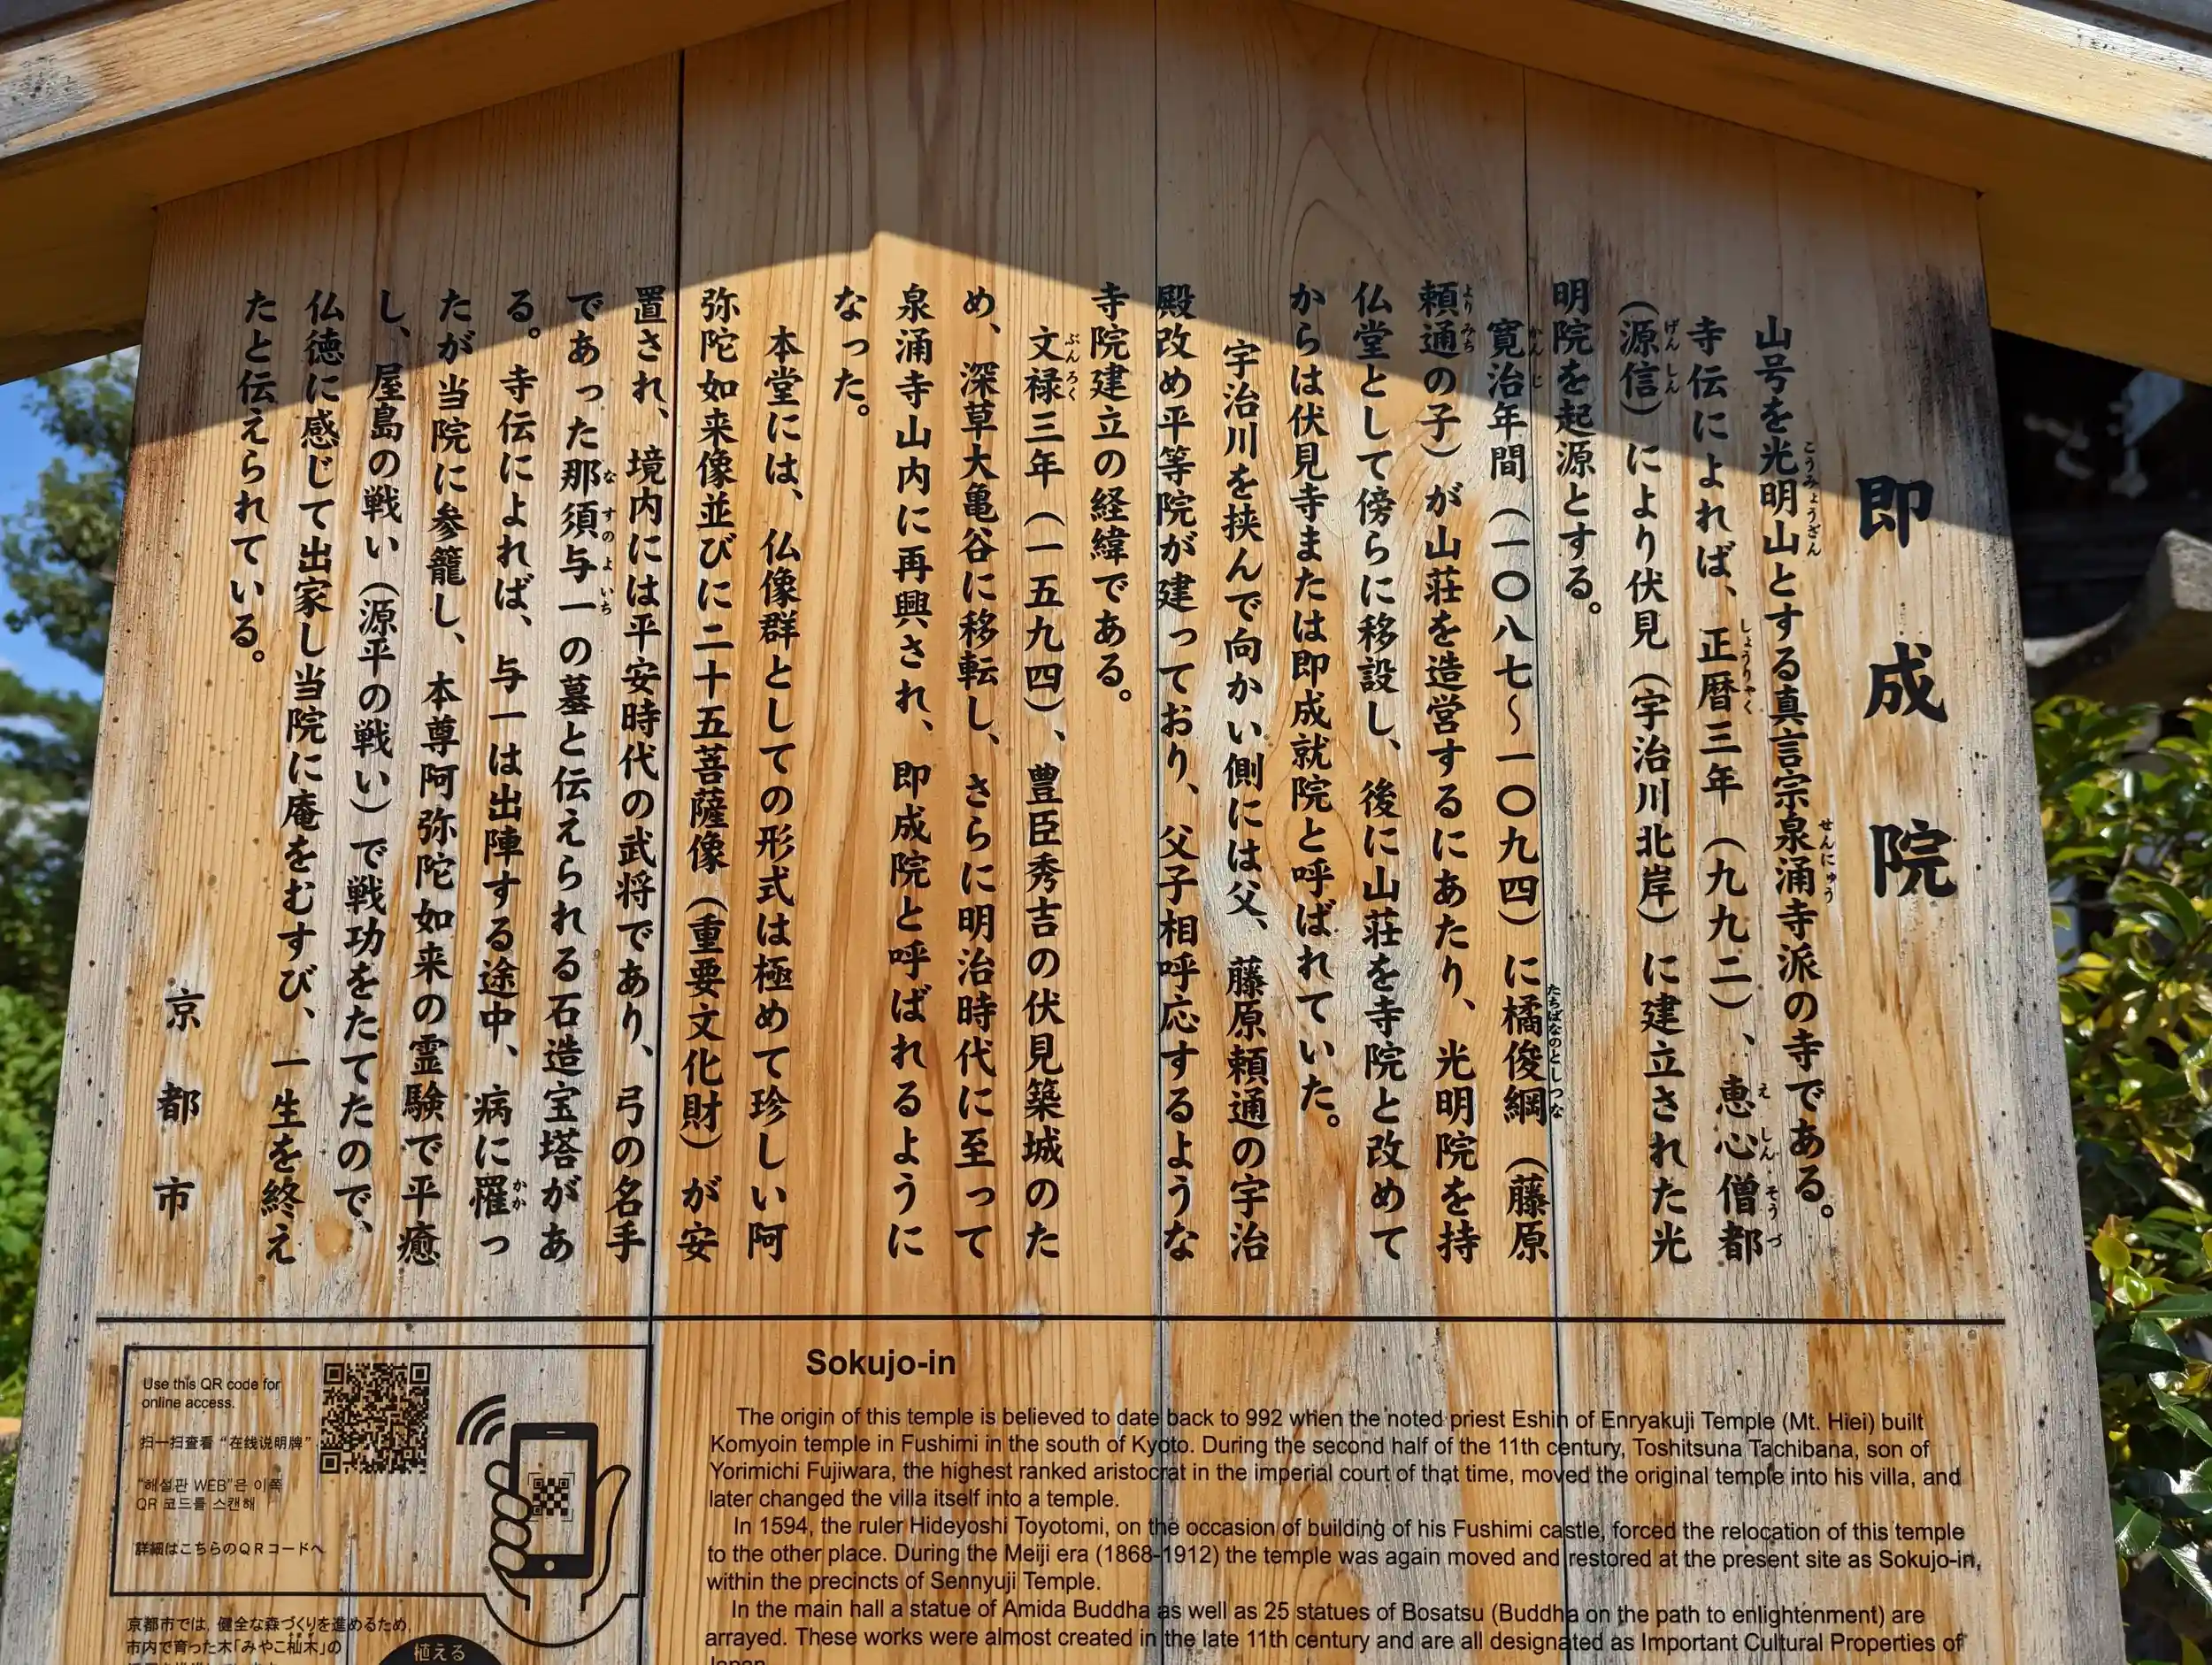 即成院
山号を光明山とする真言宗泉涌寺派の寺である。
寺伝によれば、正暦三年（九九二）、恵心僧都
（源信）により伏見（宇治川北岸）に建立された光
明院を起源とする。
寛治年間（一〇八七～一〇九四）に橘俊綱（藤原
頼通の子）が山荘を造営するにあたり、光明院を持
仏堂として傍らに移設し、後に山荘を寺院と改めて
からは伏見寺または即成就院と呼ばれていた。
宇治川を挟んで向かい側には父、藤原頼通の宇治
殿改め平等院が建っており、父子相呼応するような
寺院建立の経緯である。
文禄三年（一五九四）、豊臣秀吉の伏見築城のた
め、深草大亀谷に移転し、さらに明治時代に至って
泉涌寺山内に再興され、即成院と呼ばれるように
なった。
本堂には、仏像群としての形式は極めて珍しい阿
弥陀如来像並びに二十五菩薩像（重要文化財）が安
置され、境内には平安時代の武将であり、弓の名手
であった那須与一の墓と伝えられる石造宝塔があ
る。寺伝によれば、与一は出陣する途中、病に罹っ
たが当院に参籠し、本尊阿弥陀如来の霊験で平癒
し、屋島の戦い（源平の戦い）で戦功をたてたので、
仏徳に感じて出家し当院に庵をむすび、一生を終え
たと伝えられている。
京都市
Use this QR code for
online access.
扫一扫查看“在线说明牌”
“해설판 WEB”은 이쪽
QR 코드를 스캔해
詳細はこちらのQRコードへ
京都市では，健全な森づくりを進めるため，
市内で育った木「みやこ杣木」の
植える
Sokujo-in
The origin of this temple is believed to date back to 992 when the noted priest Eshin of Enryakuji Temple (Mt. Hiei) built
Komyoin temple in Fushimi in the south of Kyoto. During the second half of the 11th century, Toshitsuna Tachibana, son of
Yorimichi Fujiwara, the highest ranked aristocrat in the imperial court of that time, moved the original temple into his villa, and
later changed the villa itself into a temple.
In 1594, the ruler Hideyoshi Toyotomi, on the occasion of building of his Fushimi castle, forced the relocation of this temple
to the other place. During the Meiji era (1868-1912) the temple was again moved and restored at the present site as Sokujo-in,
within the precincts of Sennyuji Temple.
In the main hall a statue of Amida Buddha as well as 25 statues of Bosatsu (Buddha on the path to enlightenment) are
arrayed. These works were almost created in the late 11th century and are all designated as Important Cultural Properties of
Japan.